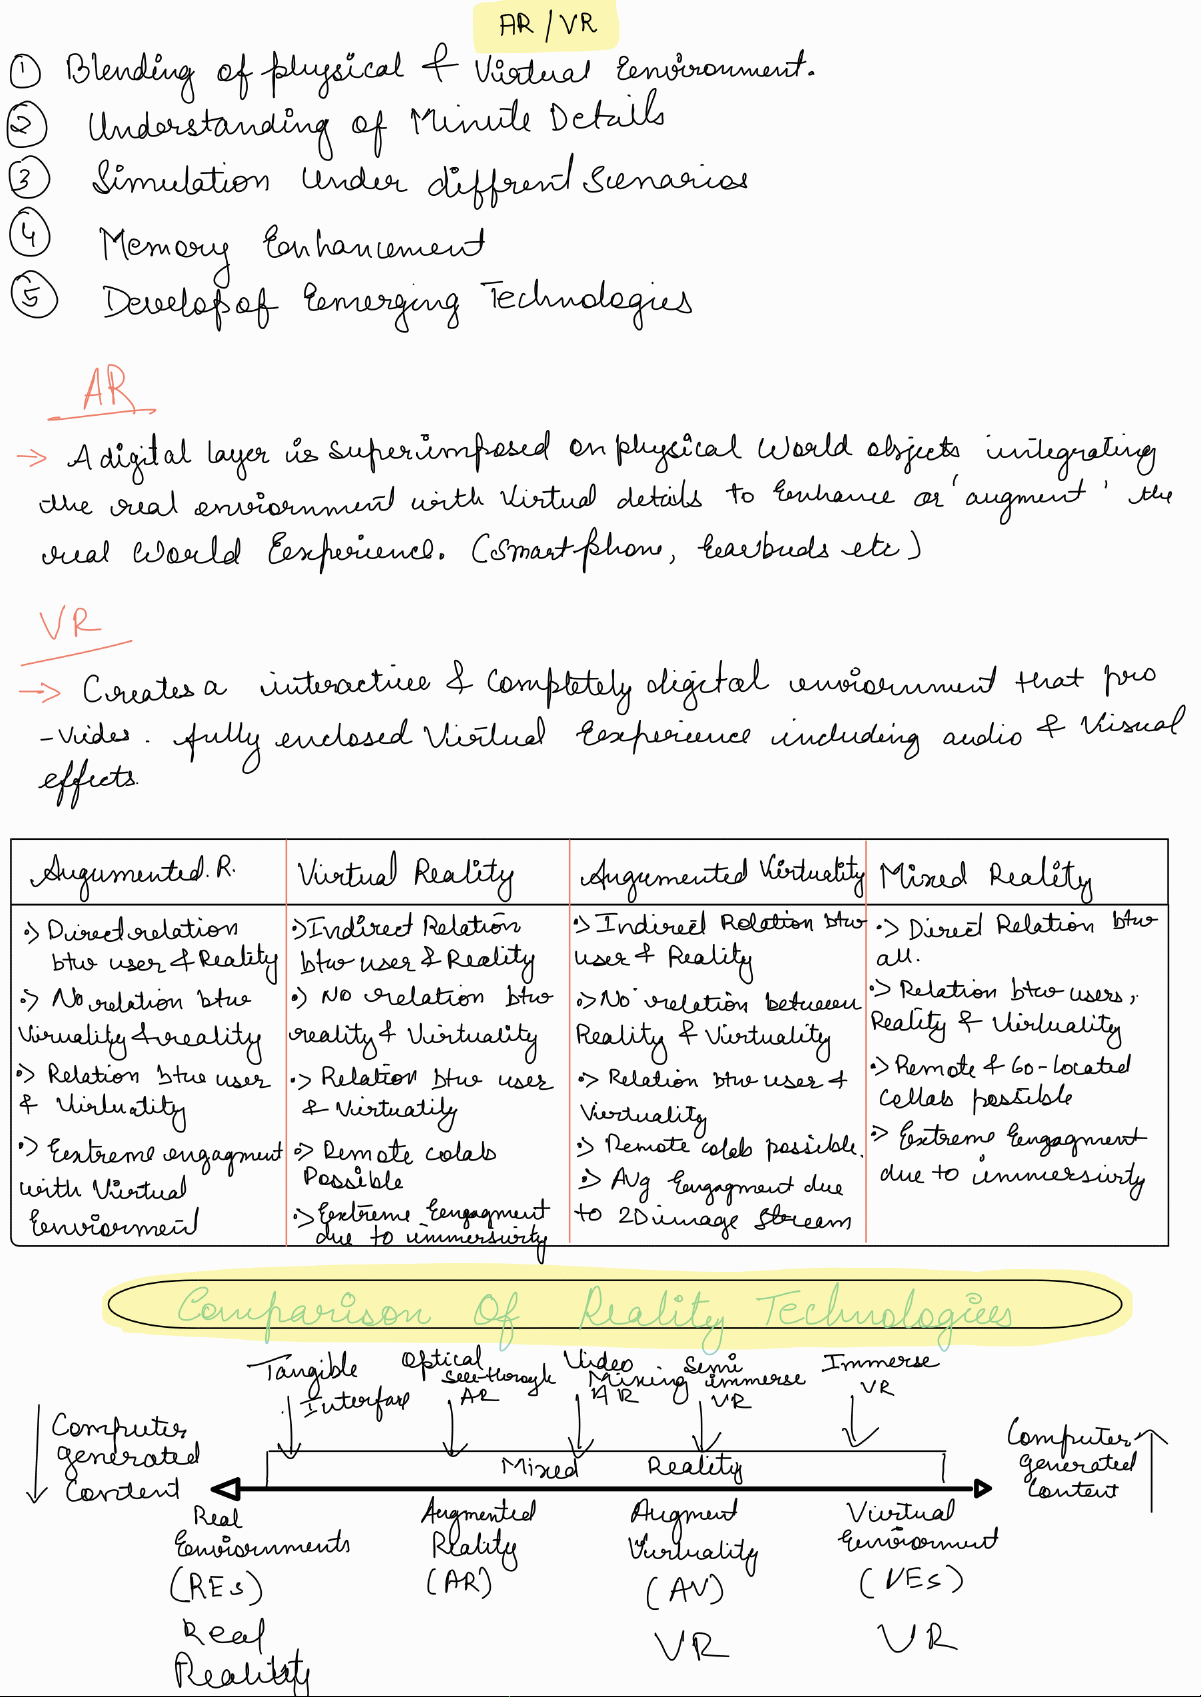 AR / VR
① Blending of physical & Virtual Environment.
② Understanding of Minute Details
③ Simulation Under diffrent Scenarios
④ Memory Enhancement
⑤ Develop of Emerging Technologies
AR
→ A digital layer is superimposed on physical World objects integrating
the real enviornment with Virtual details to Enhance or 'augment' the
real World Experience. (Smart phone, Earbuds etc)
VR
→ Creates a interactive & Completely digital enviornment that pro
-vides. fully enclosed Virtual Experience including audio & Visual
effects.
Augumented. R.
·> Direct relation
btw user & Reality
·> No relation btw
Viruality & reality
·> Relation btw user
& Virtuatity
·> Extreme engagment
with Virtual
Enviorment
Virtual Reality
·> Indirect Relation
btw user & Reality
·> No relation btw
reality & Virtuality
·> Relation btw user
& Virtuatily
·> Remote colab
Possible
·> Extreme Eengagment
due to immersivity
Augumented Virtuality
·> Indirect Relation btw
user & Reality
·> No relation between
Reality & Virtuality
·> Relation btw user &
Virtuality
·> Remote colab possible.
·> Avg Engagment due
to 2D image stream
Mixed Reality
·> Direct Relation btw
all.
·> Relation btw users,
Reality & Virtuality
·> Remote & Co-located
collab possible
·> Extreme Eengagment
due to immersivty
Comparison Of Reality Technologies
Tangible
Interface
Optical
See-through
AR
Video
Mixing
AR
Semi
immerse
VR
Immerse
VR
Computer
generated
Content
Mixed Reality
Computer
generated
Content
Real
Enviornments
(REs)
Real
Reality
Augmented
Reality
(AR)
Augment
Virtuality
(AV)
VR
Virtual
Enviornment
(VEs)
VR